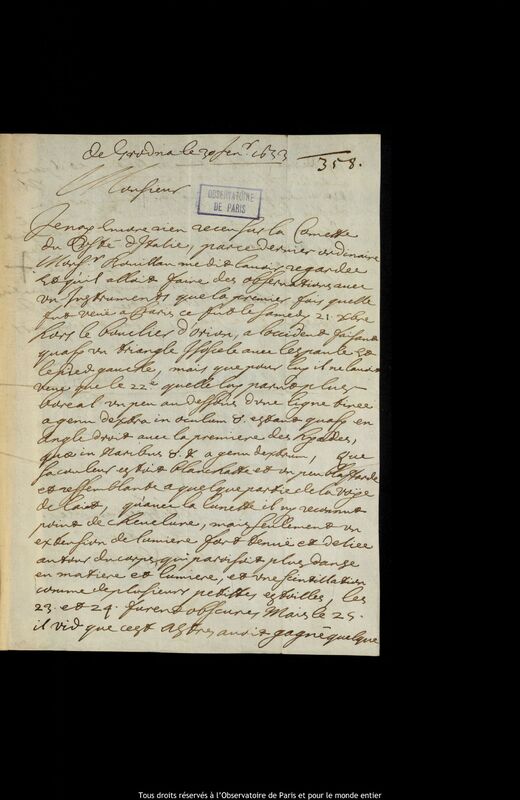 de Grodna le 30 Jenr. 1653
358.
Monsieur
OBSERVATOIRE
DE PARIS
Je n'ay encore rien receu sur la Comette
du Costé d'Italie, par ce dernier ordinaire
Monsr. Bouillau me dit l'avoir regardee
et qu'il alloit faire des observations avec
un Instruments que la premier fois quelle
fut veue a Paris ce fut le samedy 21. Xbre
hors le bouclier d'Orion, a occident faisant
quasy un triangle Isoscele avec l'espaule et
le pied gauche, mais que pour luy il ne l'avoit
veue que le 22e quelle luy parut plus
boreal un peu au dessus d'une ligne tiree
a genu dextra in oculum ♉. estant quasy en
angle droit avec la premiere des hyades,
quæ in Naribus ♉. et a genu dextrum, que
sa couleur estoit blanchatte et un peu blaffarde
et ressemblante a quelque partie de la voÿe
de laict, qu'avec la lunette il n'y reconnut
point de chevelure, mais seullement un
extension de lumiere fort tenuë et deliee
autour du corps qui paroissoit plus dense
en matiere et lumiere, et une scintillation
comme de plusieurs pettittes estoilles, les
23. et 24. furent obscures Mais le 25.
il vid que cest Astres avoit gagné quelque
Tous droits réservés à l'Observatoire de Paris et pour le monde entier